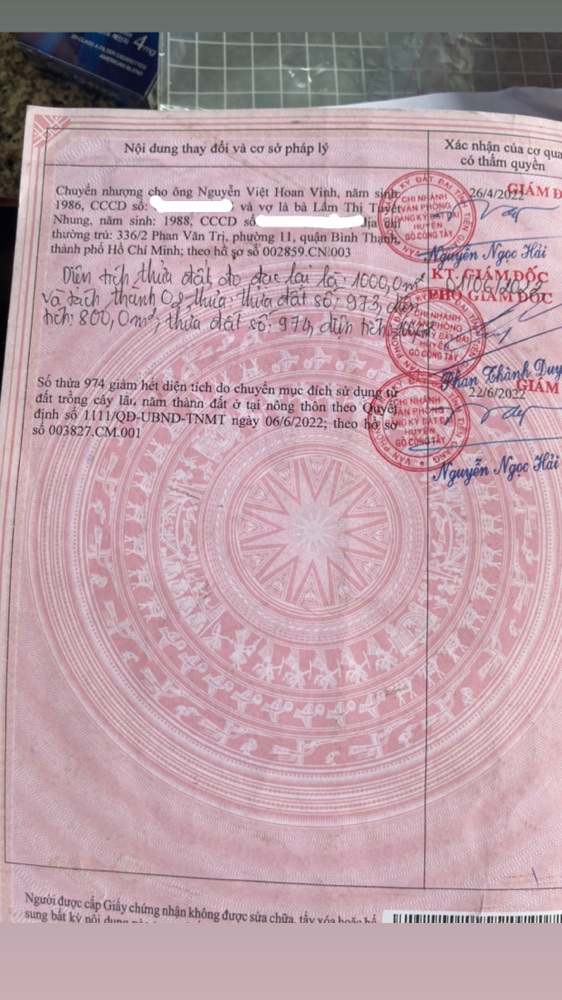 4mg
CLASS A FILTER CIGARETTES
AMERICAN BLEND
Nội dung thay đổi và cơ sở pháp lý
Xác nhận của cơ qua
có thẩm quyền
Chuyển nhượng cho ông Nguyễn Việt Hoan Vinh, năm sinh
1986, CCCD số: và vợ là bà Lầm Thị Tuyết
Nhung, năm sinh: 1988, CCCD số địa chỉ
thường trú: 336/2 Phan Văn Trị, phường 11, quận Bình Thạnh,
thành phố Hồ Chí Minh; theo hồ sơ số 002859.CN.003
26/4/2022
GIÁM Đ
CHI NHÁNH
VĂN PHÒNG
ĐĂNG KÝ ĐẤT ĐAI
HUYỆN
GÒ CÔNG TÂY
Nguyễn Ngọc Hải
Diện tích thửa đất đo đạc lại là: 1000,0m²
và tách thành 02 thửa: thửa đất số: 973, diện
tích: 800,0m², thửa đất số: 974, diện tích:
01/06/2022
KT. GIÁM ĐỐC
PHÓ GIÁM ĐỐC
CHI NHÁNH
VĂN PHÒNG
ĐĂNG KÝ ĐẤT ĐAI
HUYỆN
GÒ CÔNG TÂY
Phan Thành Duy
Số thửa 974 giảm hết diện tích do chuyển mục đích sử dụng từ
đất trồng cây lâu năm thành đất ở tại nông thôn theo Quyết
định số 1111/QĐ-UBND-TNMT ngày 06/6/2022; theo hồ sơ
số 003827.CM.001
22/6/2022
GIÁM
CHI NHÁNH
VĂN PHÒNG
ĐĂNG KÝ ĐẤT ĐAI
HUYỆN
GÒ CÔNG TÂY
Nguyễn Ngọc Hải
Người được cấp Giấy chứng nhận không được sửa chữa, tẩy xóa hoặc bổ
sung bất kỳ nội dung